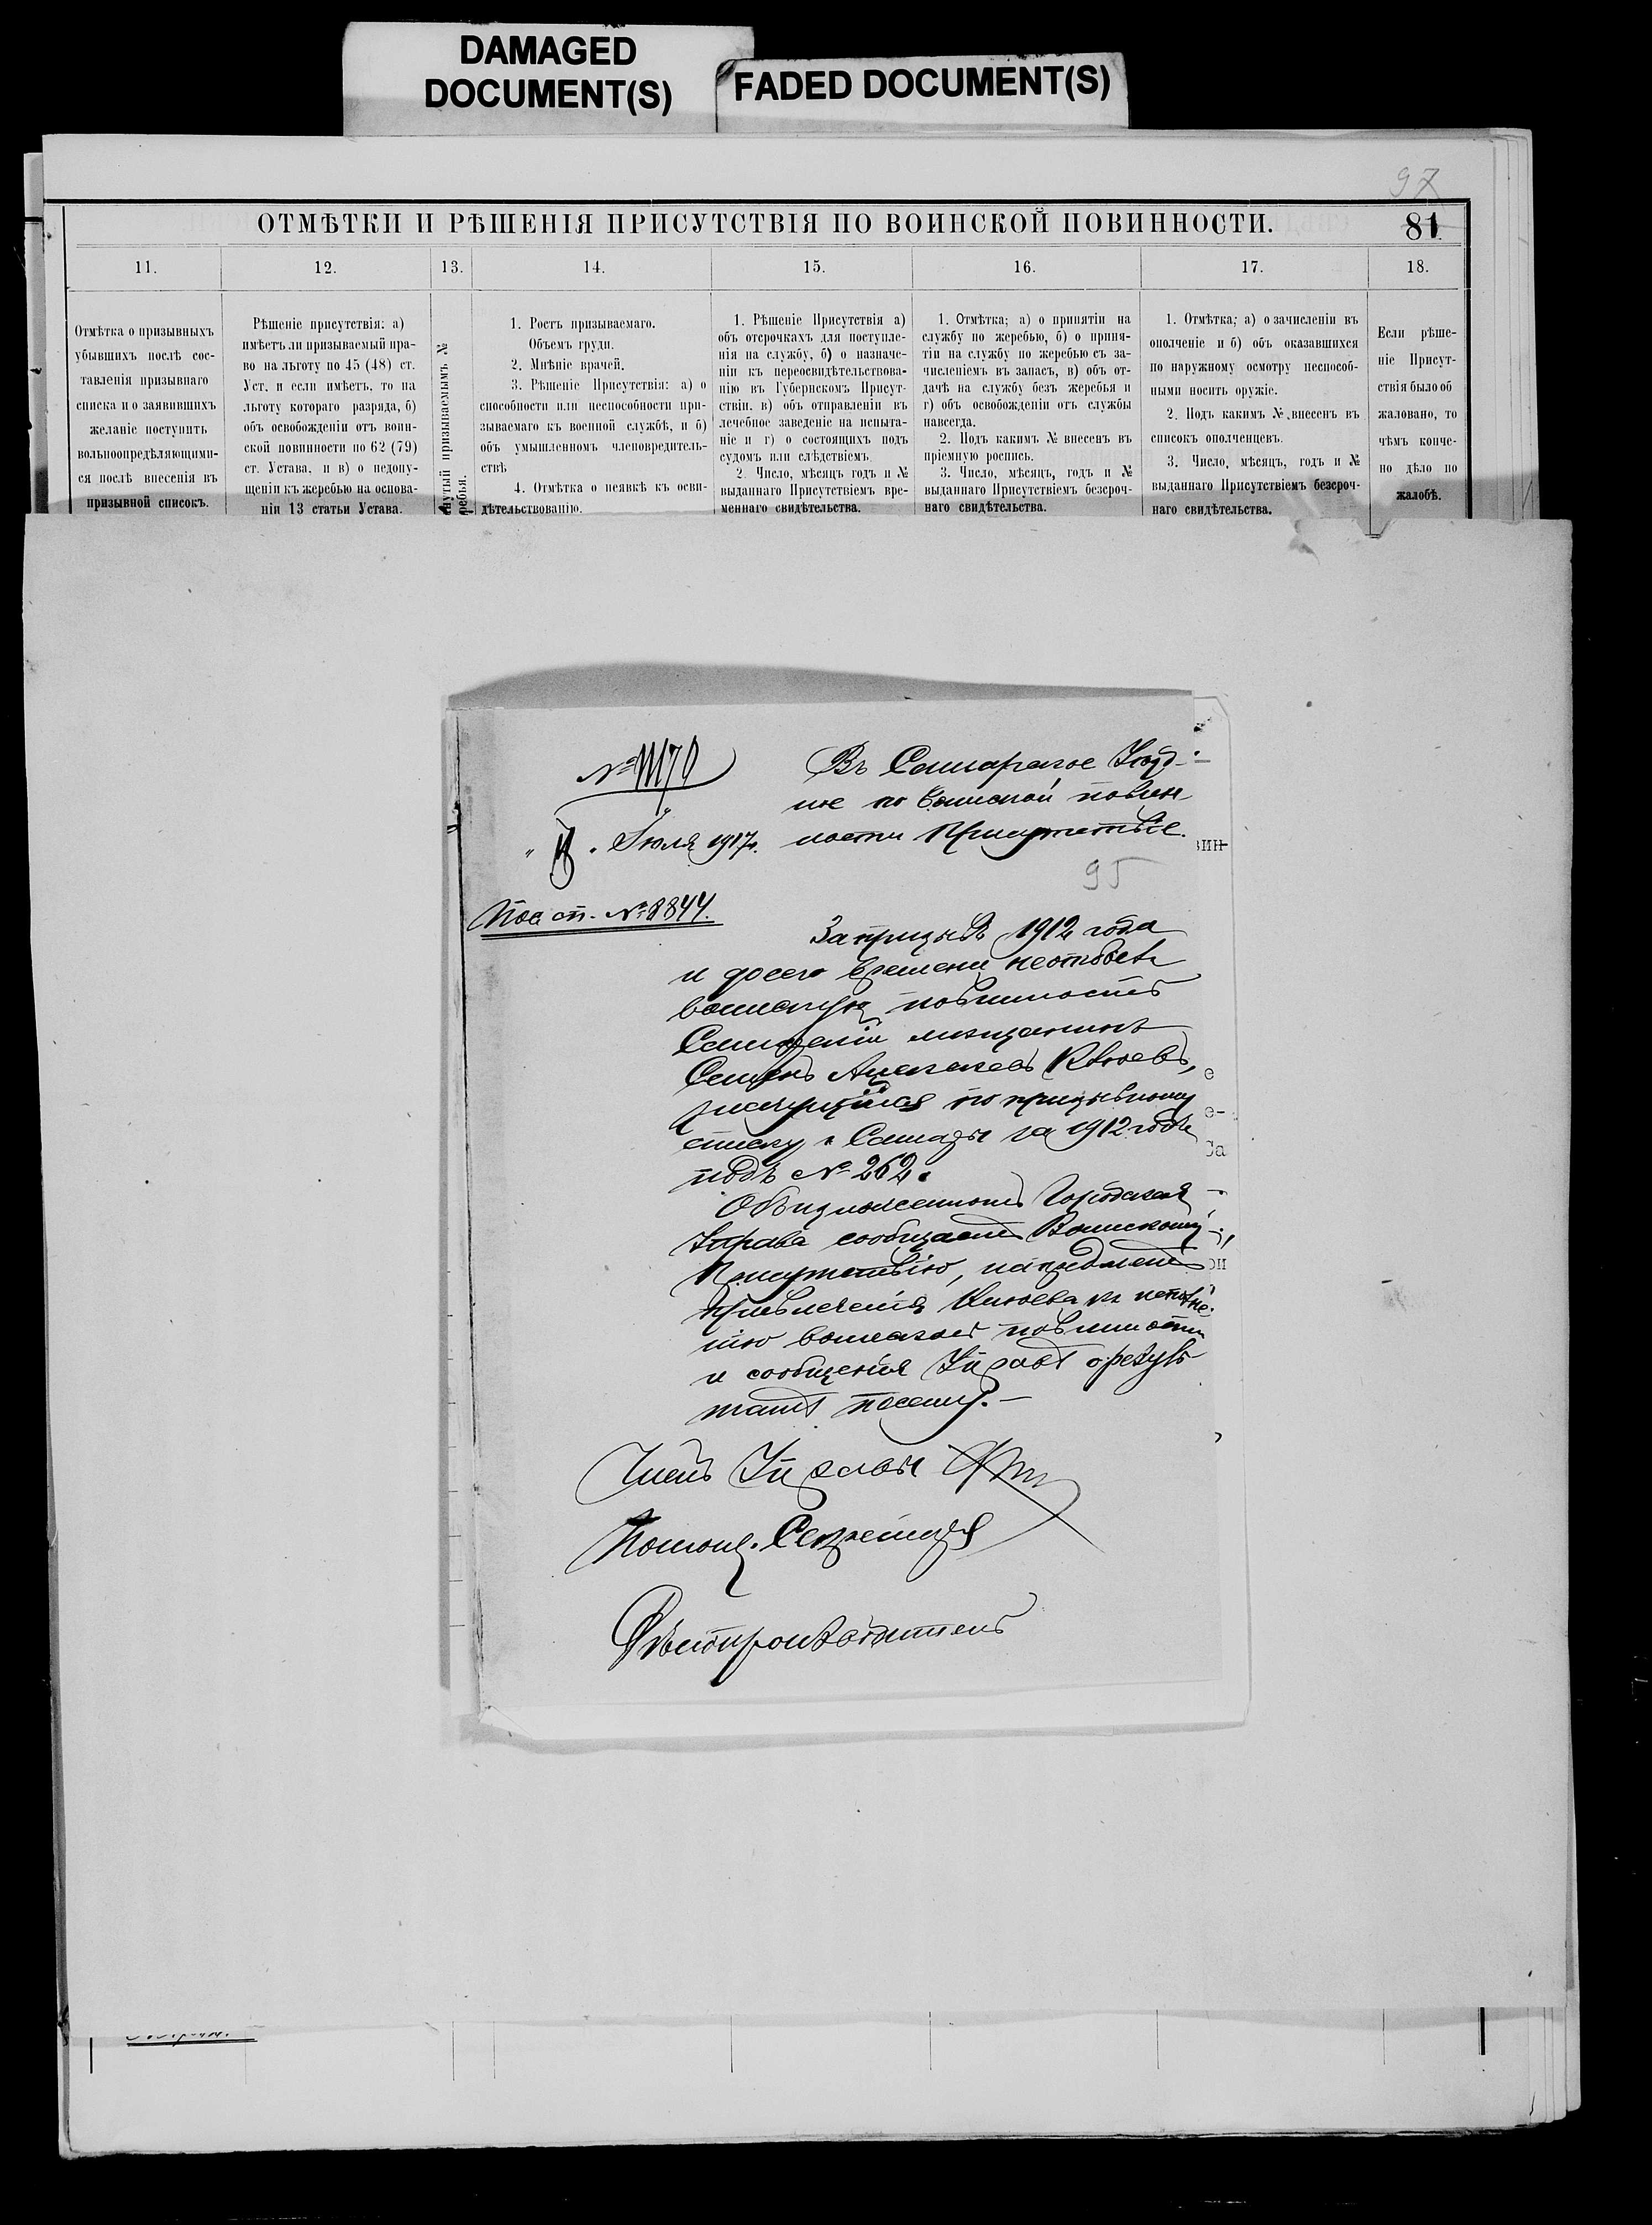 DAMAGED
DOCUMENT(S)
FADED DOCUMENT(S)
97
ОТМѢТКИ И РѢШЕНІЯ ПРИСУТСТВІЯ ПО ВОИНСКОЙ ПОВИННОСТИ.
81
11.
12.
13.
14.
15.
16.
17.
18.
Отмѣтка о призывныхъ
убывшихъ послѣ сос-
тавленія призывнаго
списка и о заявившихъ
желаніе поступить
вольноопредѣляющими-
ся послѣ внесенія въ
призывной списокъ.
Рѣшеніе присутствія: а)
имѣетъ ли призываемый пра-
во на льготу по 45 (48) ст.
Уст. и если имѣетъ, то на
льготу котораго разряда, б)
объ освобожденіи отъ воин-
ской повинности по 62 (79)
ст. Устава, и в) о недопу-
щеніи къ жеребью на основа-
ніи 13 статьи Устава.
нутый призываемымъ №
ребья.
1. Ростъ призываемаго.
Объемъ груди.
2. Мнѣніе врачей.
3. Рѣшеніе Присутствія: а) о
способности или неспособности при-
зываемаго къ военной службѣ, и б)
объ умышленномъ членовредитель-
ствѣ
4. Отмѣтка о неявкѣ къ осви-
дѣтельствованію.
1. Рѣшеніе Присутствія а)
объ отсрочкахъ для поступле-
нія на службу, б) о назначе-
ніи къ переосвидѣтельствова-
нію въ Губернскомъ Присут-
ствіи. в) объ отправленіи въ
лечебное заведеніе на испыта-
ніе и г) о состоящихъ подъ
судомъ или слѣдствіемъ
2. Число, мѣсяцъ годъ и №
выданнаго Присутствіемъ вре-
меннаго свидѣтельства.
1. Отмѣтка; а) о принятіи на
службу по жеребью, б) о приня-
тіи на службу по жеребью съ за-
численіемъ въ запасъ, в) объ от-
дачѣ на службу безъ жеребья и
г) объ освобожденіи отъ службы
навсегда.
2. Подъ какимъ № внесенъ въ
пріемную роспись.
3. Число, мѣсяцъ, годъ и №
выданнаго Присутствіемъ безсроч-
наго свидѣтельства.
1. Отмѣтка; а) о зачисленіи въ
ополченіе и б) объ оказавшихся
по наружному осмотру неспособ-
ными носить оружіе.
2. Подъ какимъ № внесенъ въ
списокъ ополченцевъ.
3. Число, мѣсяцъ, годъ и №
выданнаго Присутствіемъ безсроч-
наго свидѣтельства.
Если рѣше-
ніе Присут-
ствія было об
жаловано, то
чѣмъ конче-
но дѣло по
жалобѣ.
Въ Самарское Уѣзд-
ное по воинской повин
ности Присутствіе.
Іюля 1917г.
95
Пос ст. № 8844.
За призывъ 1912 года
и до сего времени не отбылъ
воинскую повинность
Самарскій мещанинъ
Семенъ Алексеевъ Клюевъ,
числящійся по призывному
списку г. Самары за 1912 годъ
подъ № 262.
Объ изложенномъ Городская
Управа сообщаетъ Воинскому
Присутствію, на предметъ
привлеченія Клюева къ исполне-
нію воинской повинности
и сообщенія Управѣ о резуль
татѣ посему.—
Членъ Управы
Помощ. Секретаря
Дѣлопроизводитель